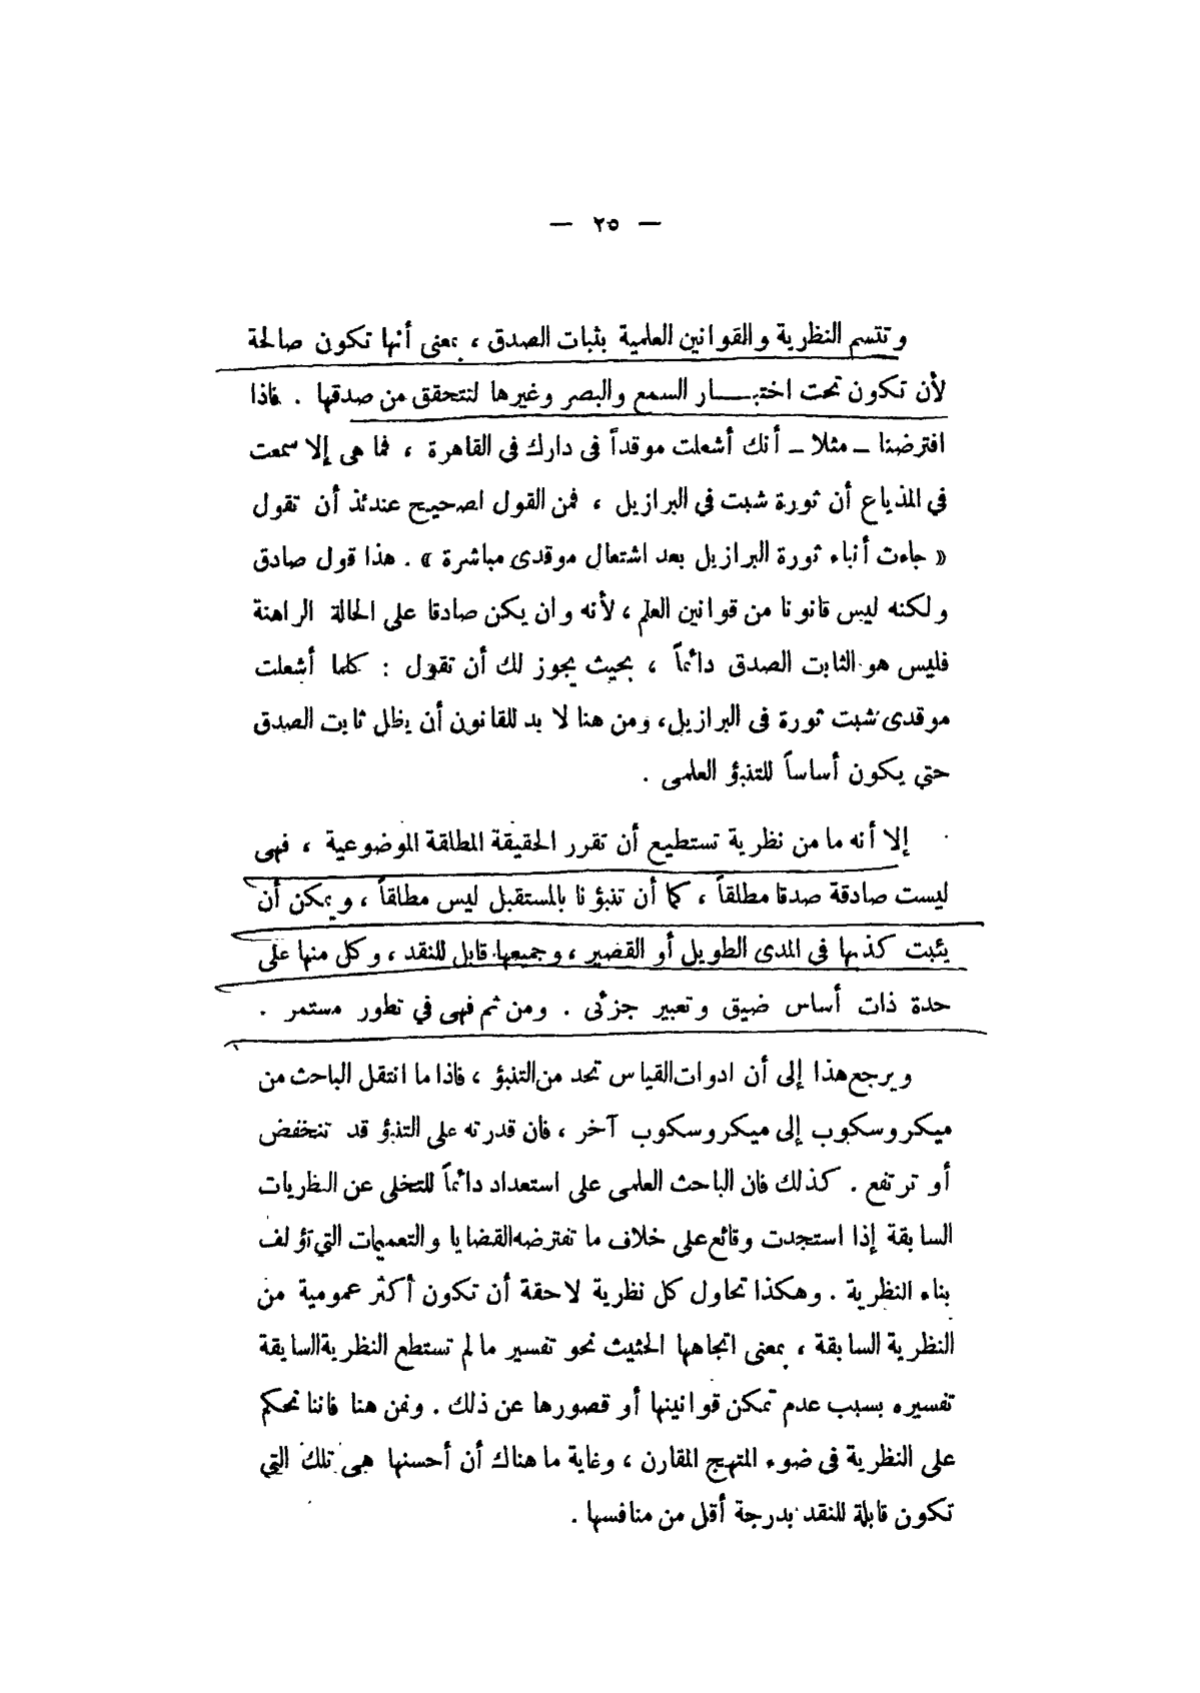 — ٢٥ —
وتتسم النظرية والقوانين العلمية بثبات الصدق ، بمعنى أنها تكون صالحة
لأن تكون تحت اختبـــار السمع والبصر وغيرها لنتحقق من صدقها . فاذا
افترضنا ــ مثلا ــ أنك أشعلت موقداً فى دارك فى القاهرة ، فما هى إلا سمعت
في المذياع أن ثورة شبت في البرازيل ، فمن القول الصحيح عندئذ أن تقول
« جاءت أنباء ثورة البرازيل بعد اشتعال موقدى مباشرة » . هذا قول صادق
ولكنه ليس قانونا من قوانين العلم ، لأنه وان يكن صادقا على الحالة الراهنة
فليس هو الثابت الصدق دائماً ، بحيث يجوز لك أن تقول : كلما أشعلت
موقدى شبت ثورة فى البرازيل، ومن هنا لا بد للقانون أن يظل ثابت الصدق
حتي يكون أساساً للتنبؤ العلمى .
إلا أنه ما من نظرية تستطيع أن تقرر الحقيقة المطلقة الموضوعية ، فهى
ليست صادقة صدقا مطلقاً ، كما أن تنبؤنا بالمستقبل ليس مطلقاً ، ويمكن أن
يثبت كذبها فى المدى الطويل أو القصير ، وجميعها قابل للنقد ، وكل منها على
حدة ذات أساس ضيق وتعبير جزئى . ومن ثم فهى في تطور مستمر .
ويرجع هذا إلى أن ادوات القياس تحد من التنبؤ ، فاذا ما انتقل الباحث من
ميكروسكوب إلى ميكروسكوب آخر ، فان قدرته على التنبؤ قد تنخفض
أو ترتفع . كذلك فان الباحث العلمى على استعداد دائماً للتخلى عن النظريات
السابقة إذا استجدت وقائع على خلاف ما تفترضه القضايا والتعميمات التي تؤلف
بناء النظرية . وهكذا تحاول كل نظرية لاحقة أن تكون أكثر عمومية من
النظرية السابقة ، بمعنى اتجاهها الحثيث نحو تفسير ما لم تستطع النظرية السابقة
تفسيره بسبب عدم تمكن قوانينها أو قصورها عن ذلك . ومن هنا فاننا نحكم
على النظرية فى ضوء المنهج المقارن ، وغاية ما هناك أن أحسنها هى تلك التي
تكون قابلة للنقد بدرجة أقل من منافسها .